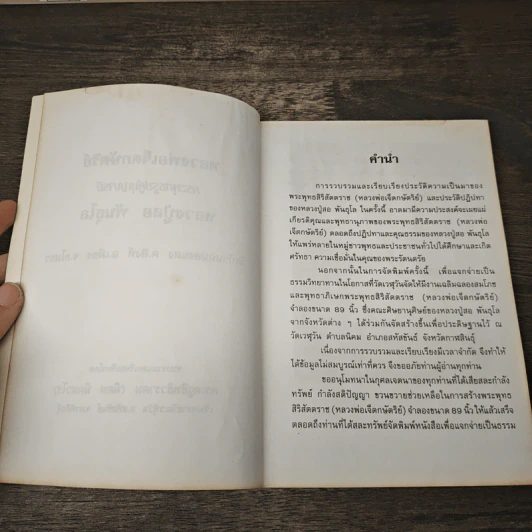 คำนำ
การรวบรวมและเรียบเรียงประวัติความเป็นมาของ
พระพุทธสิริสัตตราช (หลวงพ่อเจ็ดกษัตริย์) และประวัติปฏิปทา
ของหลวงปู่สอ พันธุโล ในครั้งนี้ อาตมามีความประสงค์จะเผยแผ่
เกียรติคุณและพุทธานุภาพของพระพุทธสิริสัตตราช (หลวงพ่อ
เจ็ดกษัตริย์) ตลอดถึงปฏิปทาและคุณธรรมของหลวงปู่สอ พันธุโล
ให้แพร่หลายในหมู่ชาวพุทธและประชาชนทั่วไปได้ศึกษาและเกิด
ศรัทธา ความเชื่อมั่นในคุณของพระรัตนตรัย
นอกจากนั้นในการจัดพิมพ์ครั้งนี้ เพื่อแจกจ่ายเป็น
ธรรมวิทยาทานในโอกาสที่วัดเวฬุวันจัดให้มีงานเฉลิมฉลองสมโภช
และพุทธาภิเษกพระพุทธสิริสัตตราช (หลวงพ่อเจ็ดกษัตริย์)
จำลองขนาด 89 นิ้ว ซึ่งคณะศิษยานุศิษย์ของหลวงปู่สอ พันธุโล
จากจังหวัดต่าง ๆ ได้ร่วมกันจัดสร้างขึ้นเพื่อประดิษฐานไว้ ณ
วัดเวฬุวัน ตำบลนิคม อำเภอสหัสขันธ์ จังหวัดกาฬสินธุ์
เนื่องจากการรวบรวมและเรียบเรียงมีเวลาจำกัด จึงทำให้
ได้ข้อมูลไม่สมบูรณ์เท่าที่ควร จึงขออภัยท่านผู้อ่านทุกท่าน
ขออนุโมทนาในกุศลเจตนาของทุกท่านที่ได้เสียสละกำลัง
ทรัพย์ กำลังสติปัญญา ขวนขวายช่วยเหลือในการสร้างพระพุทธ
สิริสัตตราช (หลวงพ่อเจ็ดกษัตริย์) จำลองขนาด 89 นิ้ว ให้แล้วเสร็จ
ตลอดถึงท่านที่ได้สละทรัพย์จัดพิมพ์หนังสือเพื่อแจกจ่ายเป็นธรรม